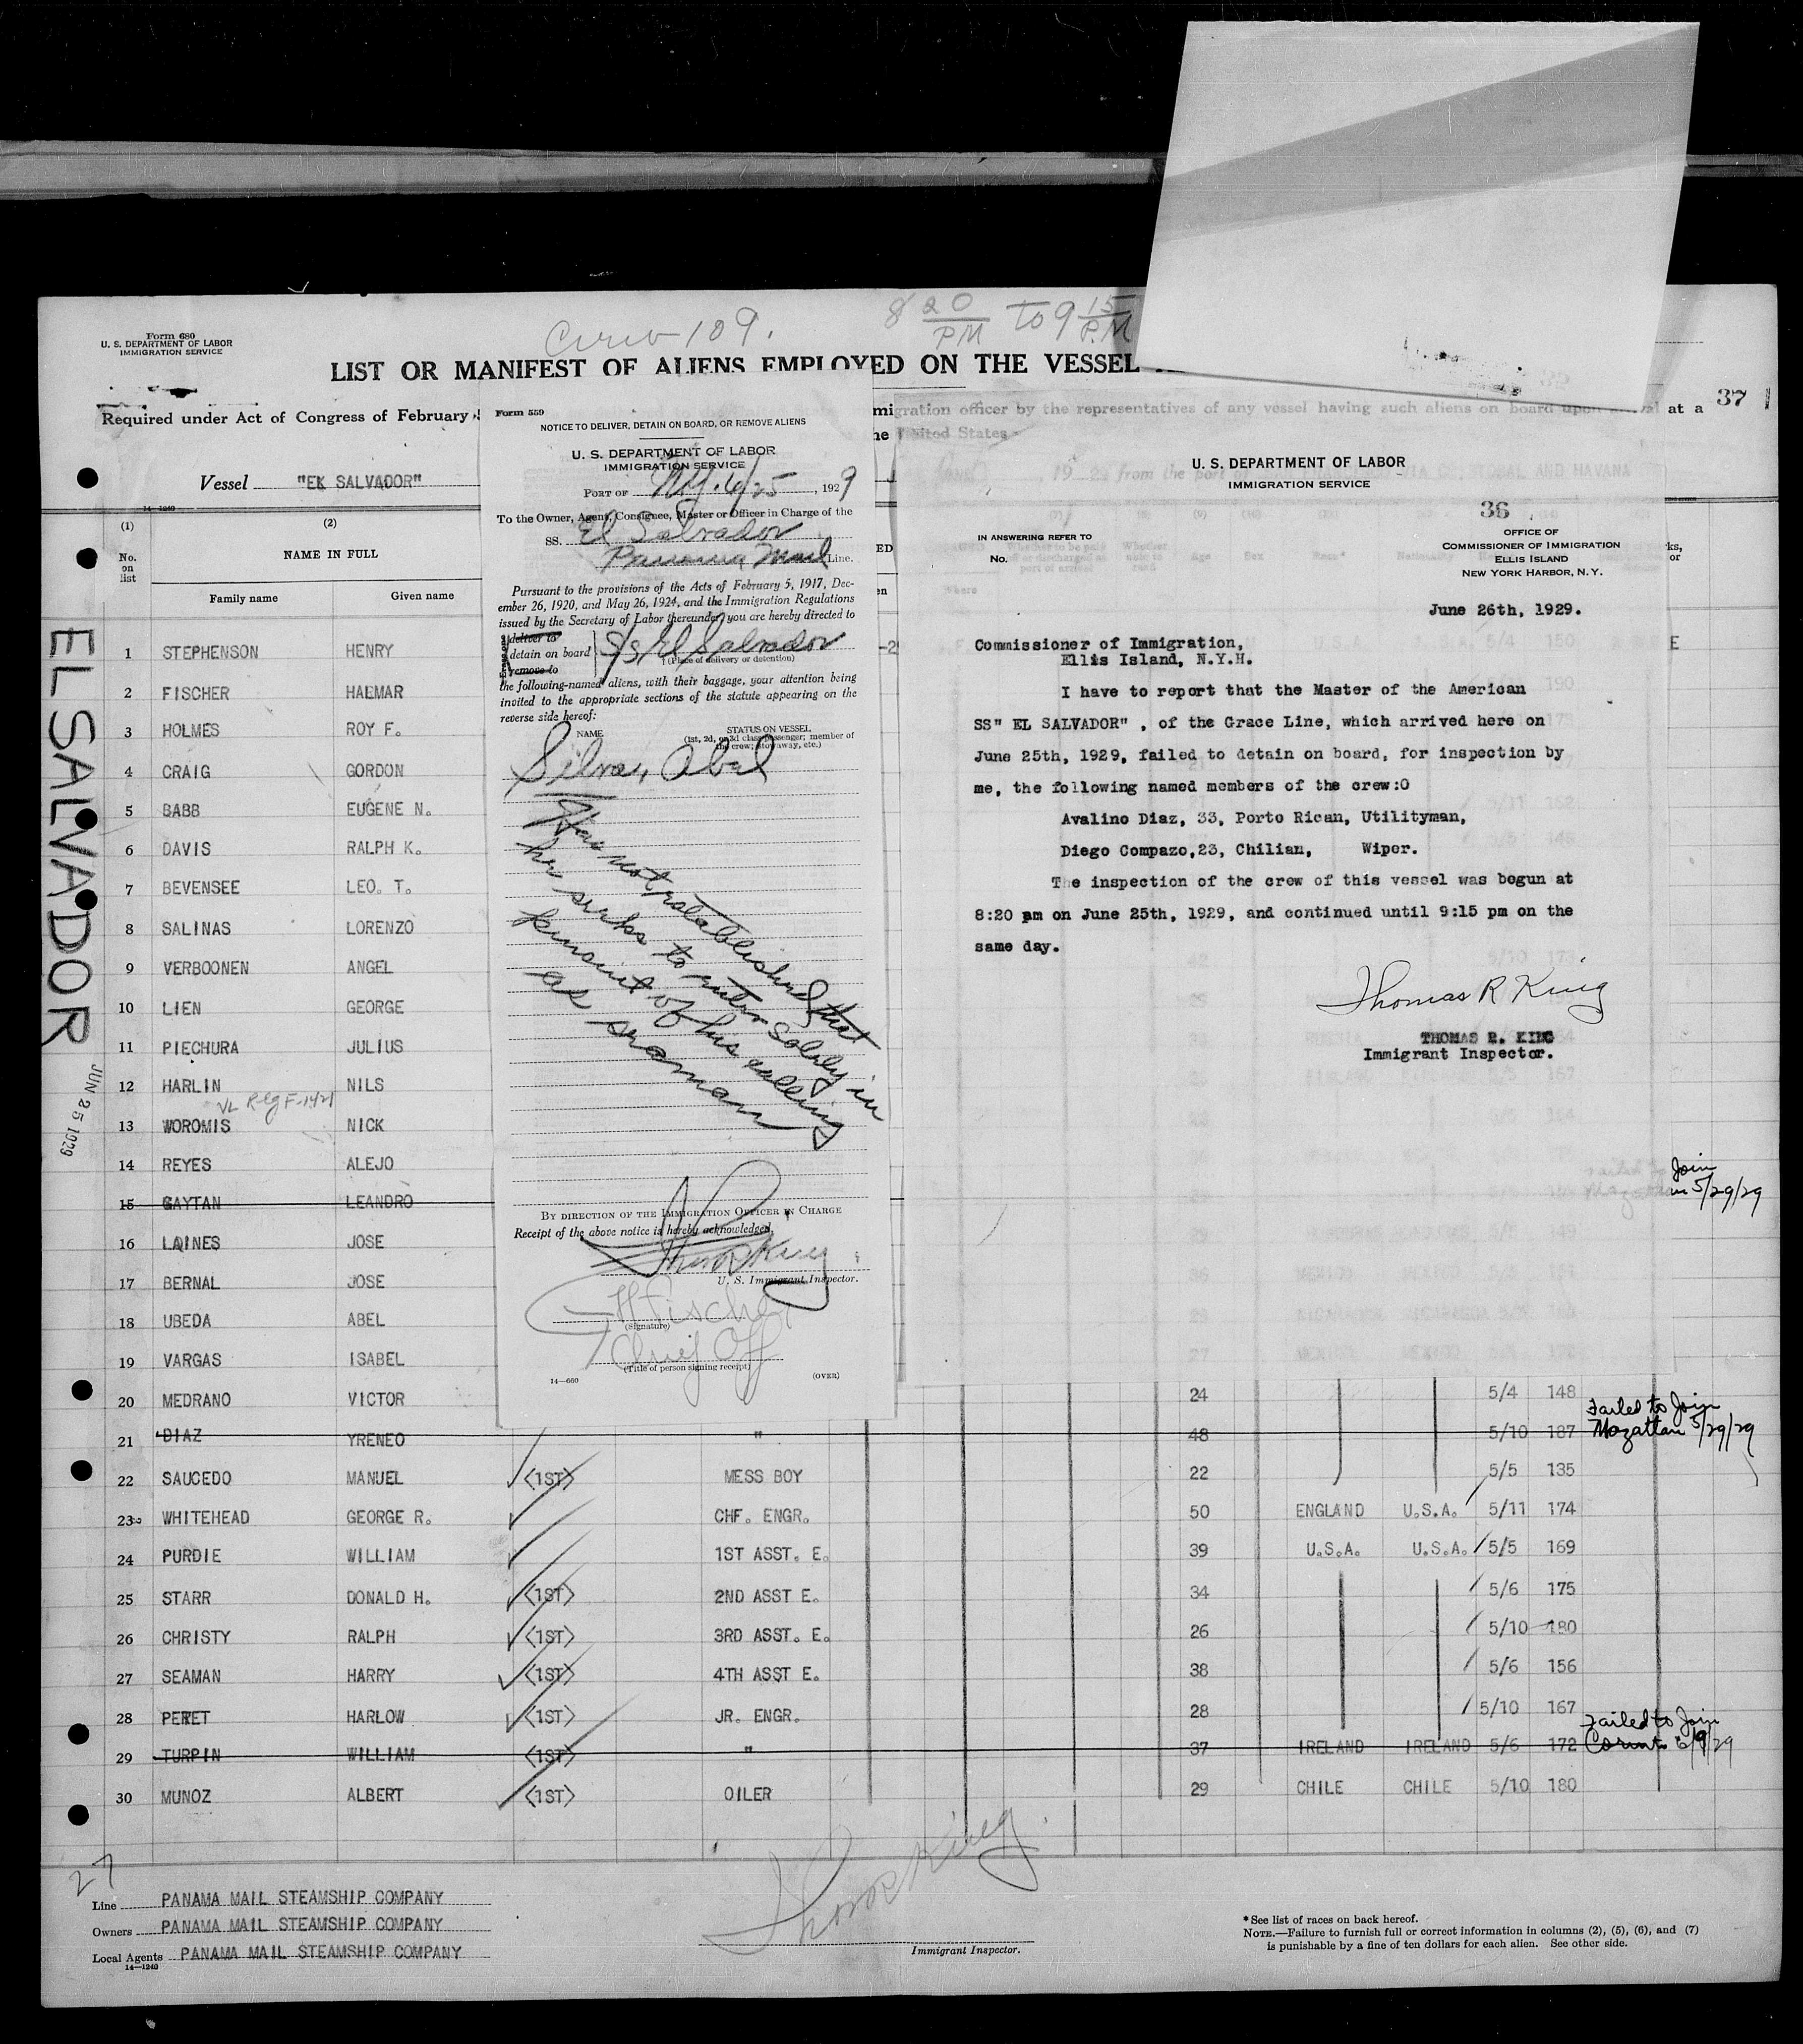 Form 680
U. S. DEPARTMENT OF LABOR
IMMIGRATION SERVICE
109.
8 20 PM to 9 15 P.M
LIST OR MANIFEST OF ALIENS EMPLOYED ON THE VESSEL
Required under Act of Congress of February
migration officer by the representatives of any vessel having such aliens on board upon at a
United States
37
Vessel "EK SALVADOR"
from the port AND HAVANA
14—1240
(1) (2)
No. on list
NAME IN FULL
Family name Given name
EL SALVADOR
JUN 25 1929
1 STEPHENSON HENRY
2 FISCHER HALMAR
3 HOLMES ROY F.
4 CRAIG GORDON
5 BABB EUGENE N.
6 DAVIS RALPH K.
7 BEVENSEE LEO. T.
8 SALINAS LORENZO
9 VERBOONEN ANGEL
10 LIEN GEORGE
11 PIECHURA JULIUS
12 HARLIN NILS
13 WOROMIS NICK
14 REYES ALEJO
15 GAYTAN LEANDRO Join 5/29/29
16 LAINES JOSE
17 BERNAL JOSE
18 UBEDA ABEL
19 VARGAS ISABEL
20 MEDRANO VICTOR 24 5/4 148
21 DIAZ YRENEO " 48 5/10 187 Failed to Join Mazatlan 5/29/29
22 SAUCEDO MANUEL (1ST) MESS BOY 22 5/5 135
23 WHITEHEAD GEORGE R. CHF. ENGR. 50 ENGLAND U.S.A. 5/11 174
24 PURDIE WILLIAM 1ST ASST. E. 39 U.S.A. U.S.A. 5/5 169
25 STARR DONALD H. (1ST) 2ND ASST E. 34 5/6 175
26 CHRISTY RALPH (1ST) 3RD ASST. E. 26 5/10 180
27 SEAMAN HARRY (1ST) 4TH ASST E. 38 5/6 156
28 PERET HARLOW (1ST) JR. ENGR. 28 5/10 167
29 TURPIN WILLIAM (1ST) " 37 IRELAND IRELAND 5/6 172 Failed to Join Corinto
30 MUNOZ ALBERT (1ST) OILER 29 CHILE CHILE 5/10 180
27
Line PANAMA MAIL STEAMSHIP COMPANY
Owners PANAMA MAIL STEAMSHIP COMPANY
Local Agents PANAMA MAIL STEAMSHIP COMPANY
14—1240
Thos R King
Immigrant Inspector.
*See list of races on back hereof.
NOTE.—Failure to furnish full or correct information in columns (2), (5), (6), and (7)
is punishable by a fine of ten dollars for each alien. See other side.
Form 559
NOTICE TO DELIVER, DETAIN ON BOARD, OR REMOVE ALIENS
U. S. DEPARTMENT OF LABOR
IMMIGRATION SERVICE
PORT OF N.Y. 6/25, 1929
To the Owner, Agent, Consignee, Master or Officer in Charge of the
SS. El Salvador
Panama Mail Line.
Pursuant to the provisions of the Acts of February 5, 1917, Dec-
ember 26, 1920, and May 26, 1924, and the Immigration Regulations
issued by the Secretary of Labor thereunder, you are hereby directed to
deliver to
detain on board
remove to
S/s El Salvador
(Place of delivery or detention)
the following-named aliens, with their baggage, your attention being
invited to the appropriate sections of the statute appearing on the
reverse side hereof:
NAME
STATUS ON VESSEL
(1st, 2d, or 3d class passenger; member of
the crew; stowaway, etc.)
Silva, Abel
Has not established that
he seeks to enter solely in
pursuit of his calling
as seaman
BY DIRECTION OF THE IMMIGRATION OFFICER IN CHARGE
Receipt of the above notice is hereby acknowledged,
Thos R King
U. S. Immigrant Inspector.
H Fischer
(Signature)
Chief Off
(Title of person signing receipt)
14—660
(OVER)
U. S. DEPARTMENT OF LABOR
IMMIGRATION SERVICE
36
IN ANSWERING REFER TO
No.
OFFICE OF
COMMISSIONER OF IMMIGRATION
ELLIS ISLAND
NEW YORK HARBOR, N.Y.
June 26th, 1929.
Commissioner of Immigration,
Ellis Island, N.Y.H.
I have to report that the Master of the American
SS" EL SALVADOR" , of the Grace Line, which arrived here on
June 25th, 1929, failed to detain on board, for inspection by
me, the following named members of the crew:O
Avalino Diaz, 33, Porto Rican, Utilityman,
Diego Compazo,23, Chilian, Wiper.
The inspection of the crew of this vessel was begun at
8:20 pm on June 25th, 1929, and continued until 9:15 pm on the
same day.
Thomas R King
THOMAS R. KING
Immigrant Inspector.